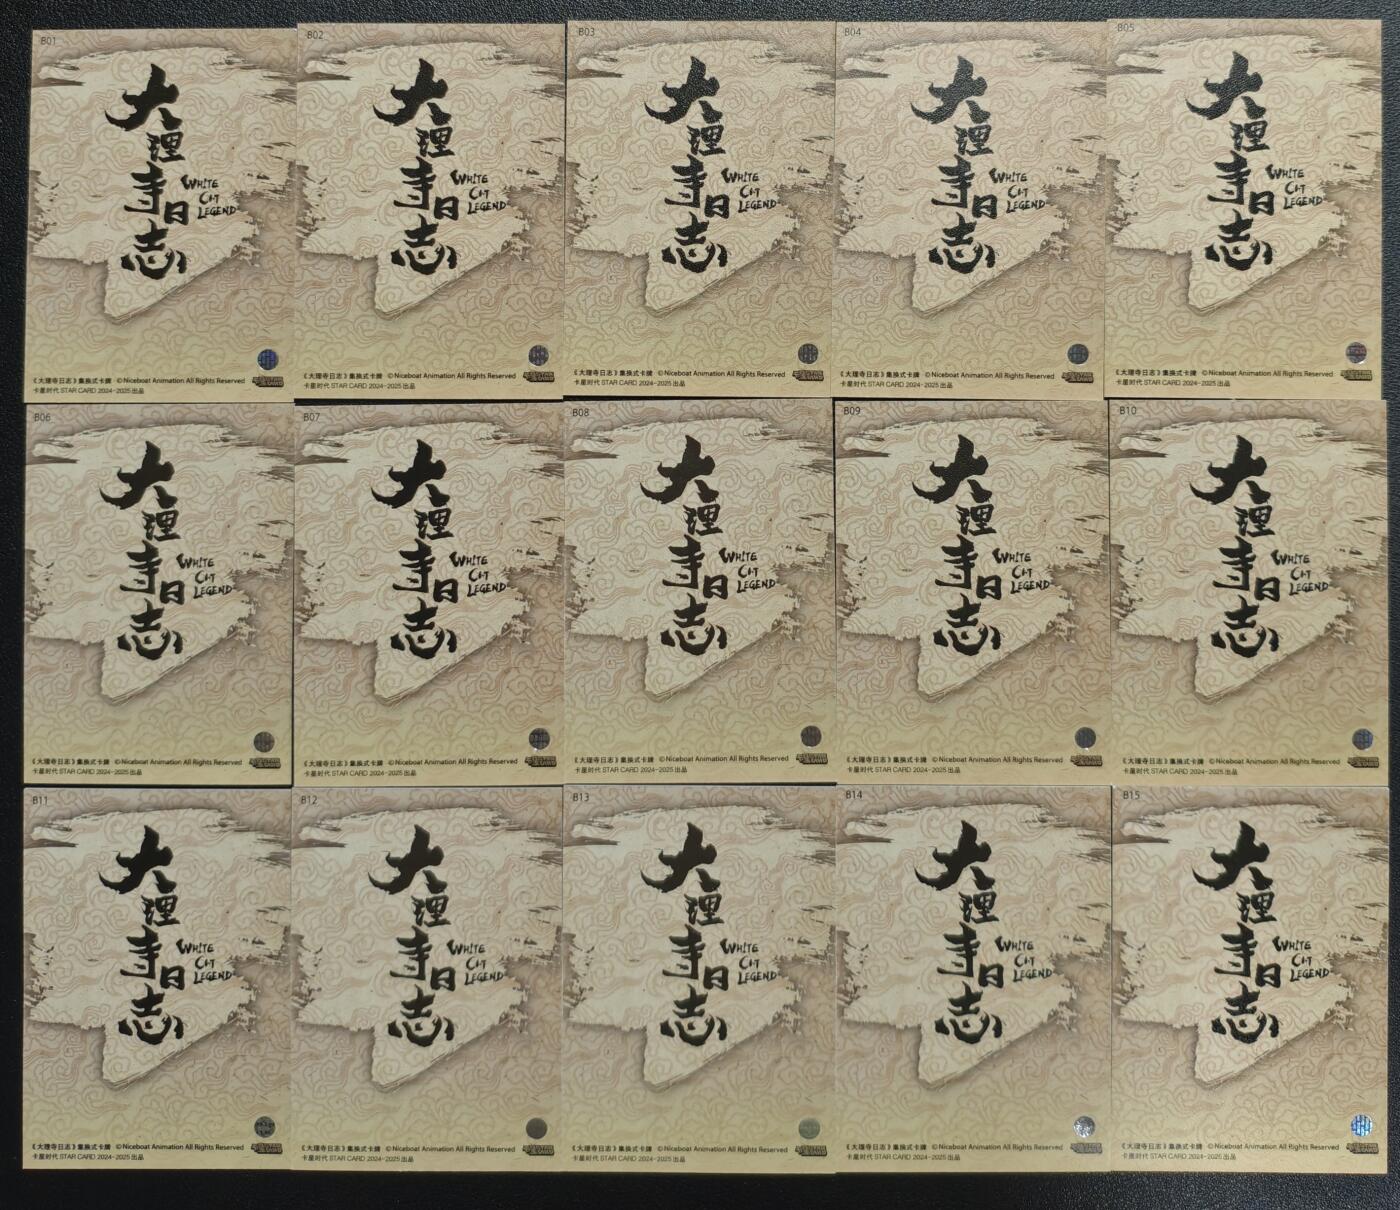 B01
大
理
寺
日
志
WHITE
CAT
LEGEND
《大理寺日志》集换式卡牌 ©Niceboat Animation All Rights Reserved
卡星时代 STAR CARD 2024-2025 出品
B02
大
理
寺
日
志
WHITE
CAT
LEGEND
《大理寺日志》集换式卡牌 ©Niceboat Animation All Rights Reserved
卡星时代 STAR CARD 2024-2025 出品
B03
大
理
寺
日
志
WHITE
CAT
LEGEND
《大理寺日志》集换式卡牌 ©Niceboat Animation All Rights Reserved
卡星时代 STAR CARD 2024-2025 出品
B04
大
理
寺
日
志
WHITE
CAT
LEGEND
《大理寺日志》集换式卡牌 ©Niceboat Animation All Rights Reserved
卡星时代 STAR CARD 2024-2025 出品
B05
大
理
寺
日
志
WHITE
CAT
LEGEND
《大理寺日志》集换式卡牌 ©Niceboat Animation All Rights Reserved
卡星时代 STAR CARD 2024-2025 出品
B06
大
理
寺
日
志
WHITE
CAT
LEGEND
《大理寺日志》集换式卡牌 ©Niceboat Animation All Rights Reserved
卡星时代 STAR CARD 2024-2025 出品
B07
大
理
寺
日
志
WHITE
CAT
LEGEND
《大理寺日志》集换式卡牌 ©Niceboat Animation All Rights Reserved
卡星时代 STAR CARD 2024-2025 出品
B08
大
理
寺
日
志
WHITE
CAT
LEGEND
《大理寺日志》集换式卡牌 ©Niceboat Animation All Rights Reserved
卡星时代 STAR CARD 2024-2025 出品
B09
大
理
寺
日
志
WHITE
CAT
LEGEND
《大理寺日志》集换式卡牌 ©Niceboat Animation All Rights Reserved
卡星时代 STAR CARD 2024-2025 出品
B10
大
理
寺
日
志
WHITE
CAT
LEGEND
《大理寺日志》集换式卡牌 ©Niceboat Animation All Rights Reserved
卡星时代 STAR CARD 2024-2025 出品
B11
大
理
寺
日
志
WHITE
CAT
LEGEND
《大理寺日志》集换式卡牌 ©Niceboat Animation All Rights Reserved
卡星时代 STAR CARD 2024-2025 出品
B12
大
理
寺
日
志
WHITE
CAT
LEGEND
《大理寺日志》集换式卡牌 ©Niceboat Animation All Rights Reserved
卡星时代 STAR CARD 2024-2025 出品
B13
大
理
寺
日
志
WHITE
CAT
LEGEND
《大理寺日志》集换式卡牌 ©Niceboat Animation All Rights Reserved
卡星时代 STAR CARD 2024-2025 出品
B14
大
理
寺
日
志
WHITE
CAT
LEGEND
《大理寺日志》集换式卡牌 ©Niceboat Animation All Rights Reserved
卡星时代 STAR CARD 2024-2025 出品
B15
大
理
寺
日
志
WHITE
CAT
LEGEND
《大理寺日志》集换式卡牌 ©Niceboat Animation All Rights Reserved
卡星时代 STAR CARD 2024-2025 出品